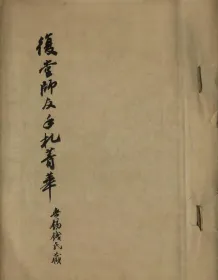 復堂師友手札菁華
无錫錢氏藏